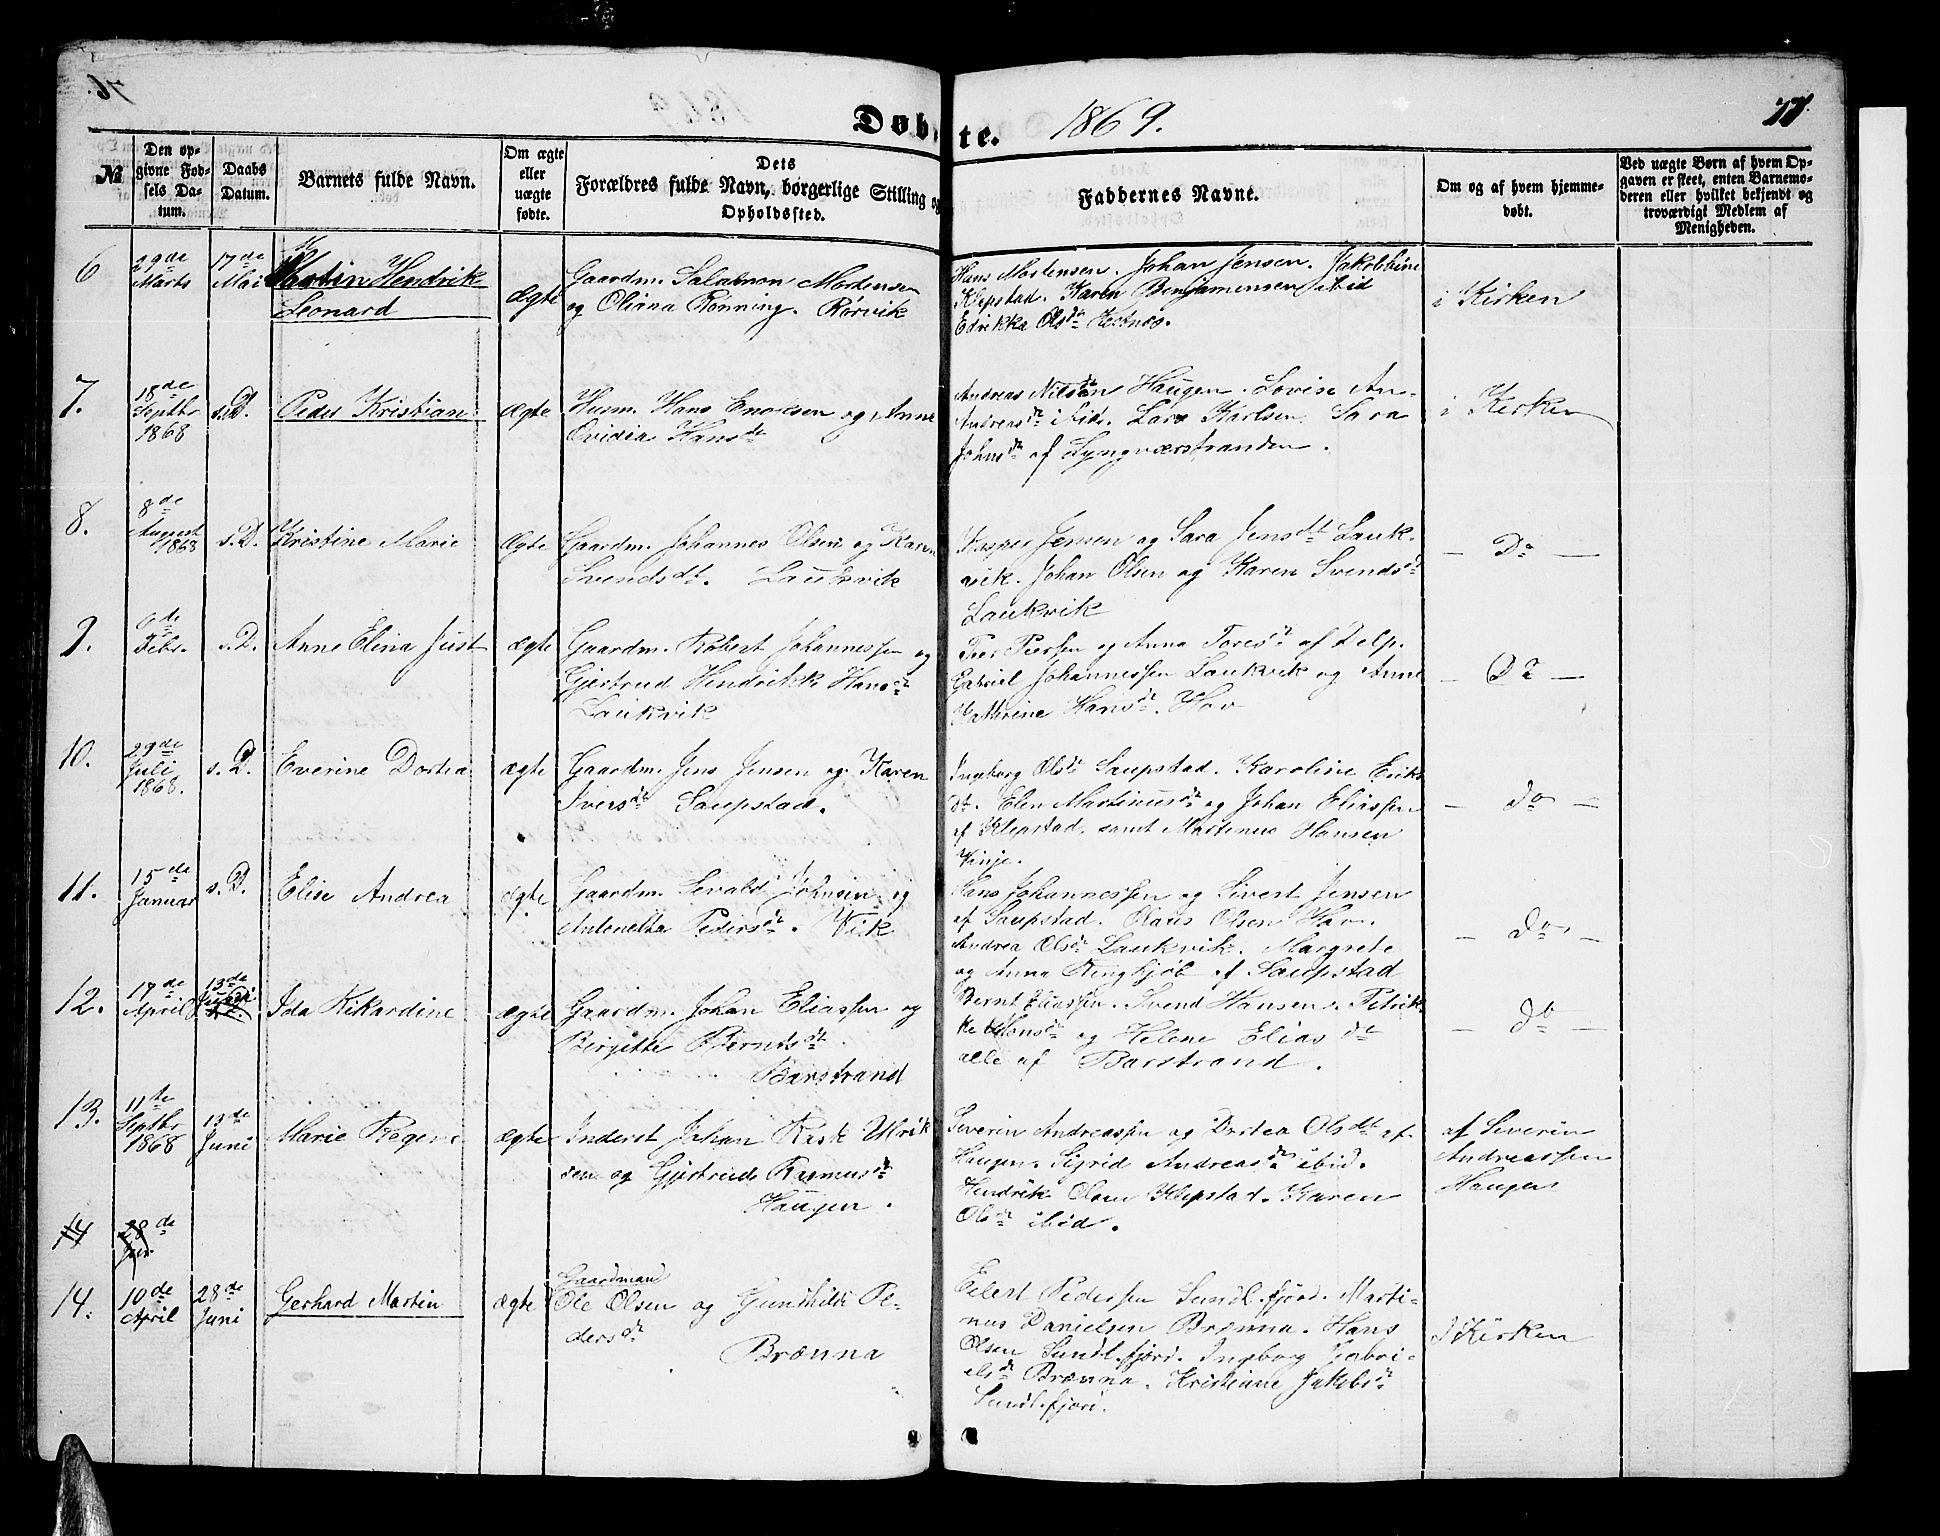 Døbte. 1869.
77.
№
Den opgivne Fødsels Datum.
Daabs Datum.
Barnets fulde Navn.
Om ægte eller uægte fødte.
Dets Forældres fulde Navn, borgerlige Stilling og Opholdssted.
Faddernes Navne.
Om og af hvem hjemmedøbt.
Ved uægte Børn af hvem Opgaven er skeet, enten Barnemoderen eller hvilket bekjendt og troværdigt Medlem af Menigheden.
6 29de Marts 17de Mai
Martin Hendrik
Leonard
Ægte
Gaardm. Salamon Mortensen
og Oliana Rønning. Rørvik
Hans Mortensen. Johan Jensen. Jakobbine
Klepstad. Karen Benjamensen ibid
Edrikka Olsdt Festnes.
i Kirken
7. 18de Septbr 1868 s.D.
Peder Kristian
Ægte
Husm. Hans Enoksen og Anne
Ovidia Hansdt
Andreas Nilsen Haugen. Lovise An-
Andreasdt ibid. Lars Karlsen. Sara
Johnsdt af Lyngværstranden.
i Kirken
8. 8de August 1868 s.D.
Kristine Marie
Ægte
Gaardm. Johannes Olsen og Karen
Svendsdt. Laukvik
Kasper Jensen og Sara Jensdt Lauk-
vik. Johan Olsen og Karen Svendsdt
Laukvik
— Do —
9. 6de Febr. s.D.
Anne Elina Just
ægte
Gaardm. Robert Johannessen og
Gjertrud Hendrikk Hansdt
Laukvik
Peer Peersen og Anna Toresdt af Delp.
Gabriel Johannessen Laukvik og Anne
Kathrine Hansdt. Hov
— Do —
10. 29de Juli 1868. s.D.
Everine Dortea
ægte
Gaardm. Jens Jensen og Karen
Iversdt Saupstad.
Ingeborg Olsdt Saupstad. Karoline Eriks
dt. Elen Martinusdt og Johan Eliassen
af Klepstad, samt Martinus Hansen
Vinje.
— do —
11. 15de Januar s.D.
Elise Andrea
ægte
Gaardm. Sevald Johnsen og
Antonette Pedersdt. Vik
Hans Johannessen og Sivert Jensen
af Saupstad. Klaus Olsen Hov.
Andrea Olsdt Laukvik. Margrete
og Anna Ringkjøb af Saupstad
— do —
12. 17de April 13de Juni
Ida Rikardine
ægte
Gaardm. Johan Eliassen og
Birgitte Berntsdt.
Barstrand
Bernt Eliassen. Svend Hansen. Petrik-
ke Monsdt og Helene Eliasdt
alle af Barstrand
— do —
13. 11te Septbr 1868 13de Juni
Marie Regine
ægte
Inderst Johan Kask Ulrik
sen og Gjertrud Rasmusdt
Haugen.
Severin Andreassen og Dortea Olsdt af
Haugen. Sigrid Andreasdt ibid.
Hendrik Olsen Klepstad. Karen
Olsdt ibid.
af Severin
Andreassen
Haugen
14 28de Jun.
14. 10de April 28de Juni
Gerhard Martin
ægte
Gaardmand
Ole Olsen og Gunhilde Pe-
dersdt
Brænna
Eilert Pedersen Sundl.fjord. Marti-
nus Danielsen Brænna. Hans
Olsen Sundl.fjord. Ingeborg Gabri-
elsdt Brænna. Kristiane Jakobsdt
Sundl.fjord.
I Kirken